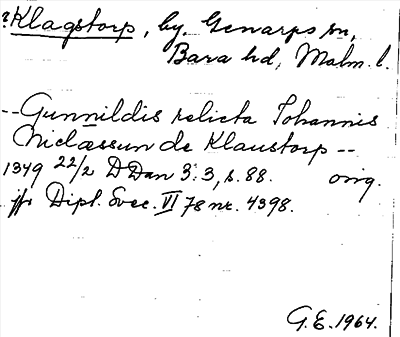 ? Klagstorp, by, Genarps sn,
Bara hd, Malm. l.
-- Gunnildis relicta Johannis
Niclæssun de Klaustorp --
1349 22/2 D Dan 3:3, s. 88. orig.
jfr Dipl. Svec. VI 78 nr. 4398.
G.E. 1964.